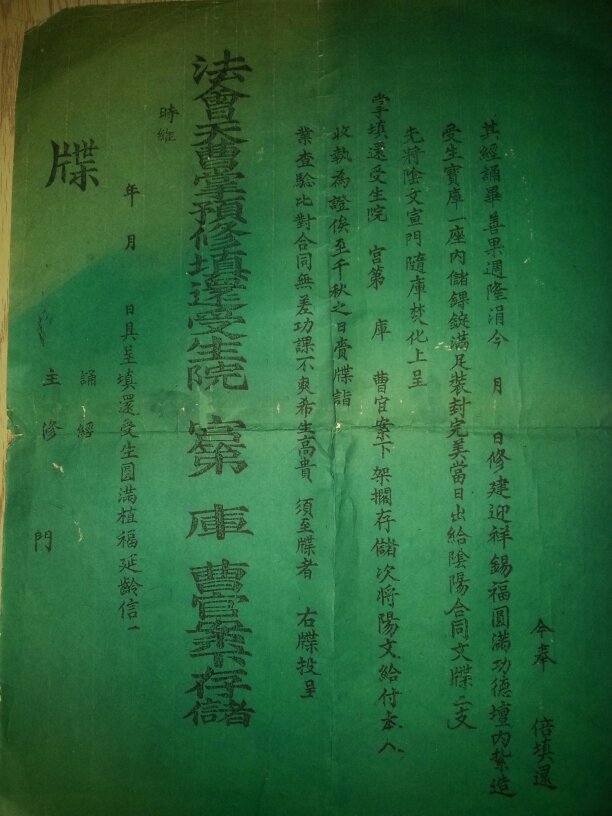 今奉　倍填還
其經誦畢善果週隆涓今　月　日修建迎祥錫福圓滿功德壇內紮造
受生寶庫一座內儲錁錠滿足裝封完美當日出給陰陽合同文牒二支
先將陰文宣門隨庫焚化上呈
掌填還受生院　宮第　庫　曹官案下架擱存儲次將陽文給付本人
收執為證俟至千秋之日賫牒詣
業查驗比對合同無差功課不爽希生高貴　須至牒者　右牒投呈
法會天曹掌預修填還受生院　宮第　庫　曹官案下存儲
時維
年　月　日具呈填還受生圓滿植福延齡信一
牒
誦經
主修　門